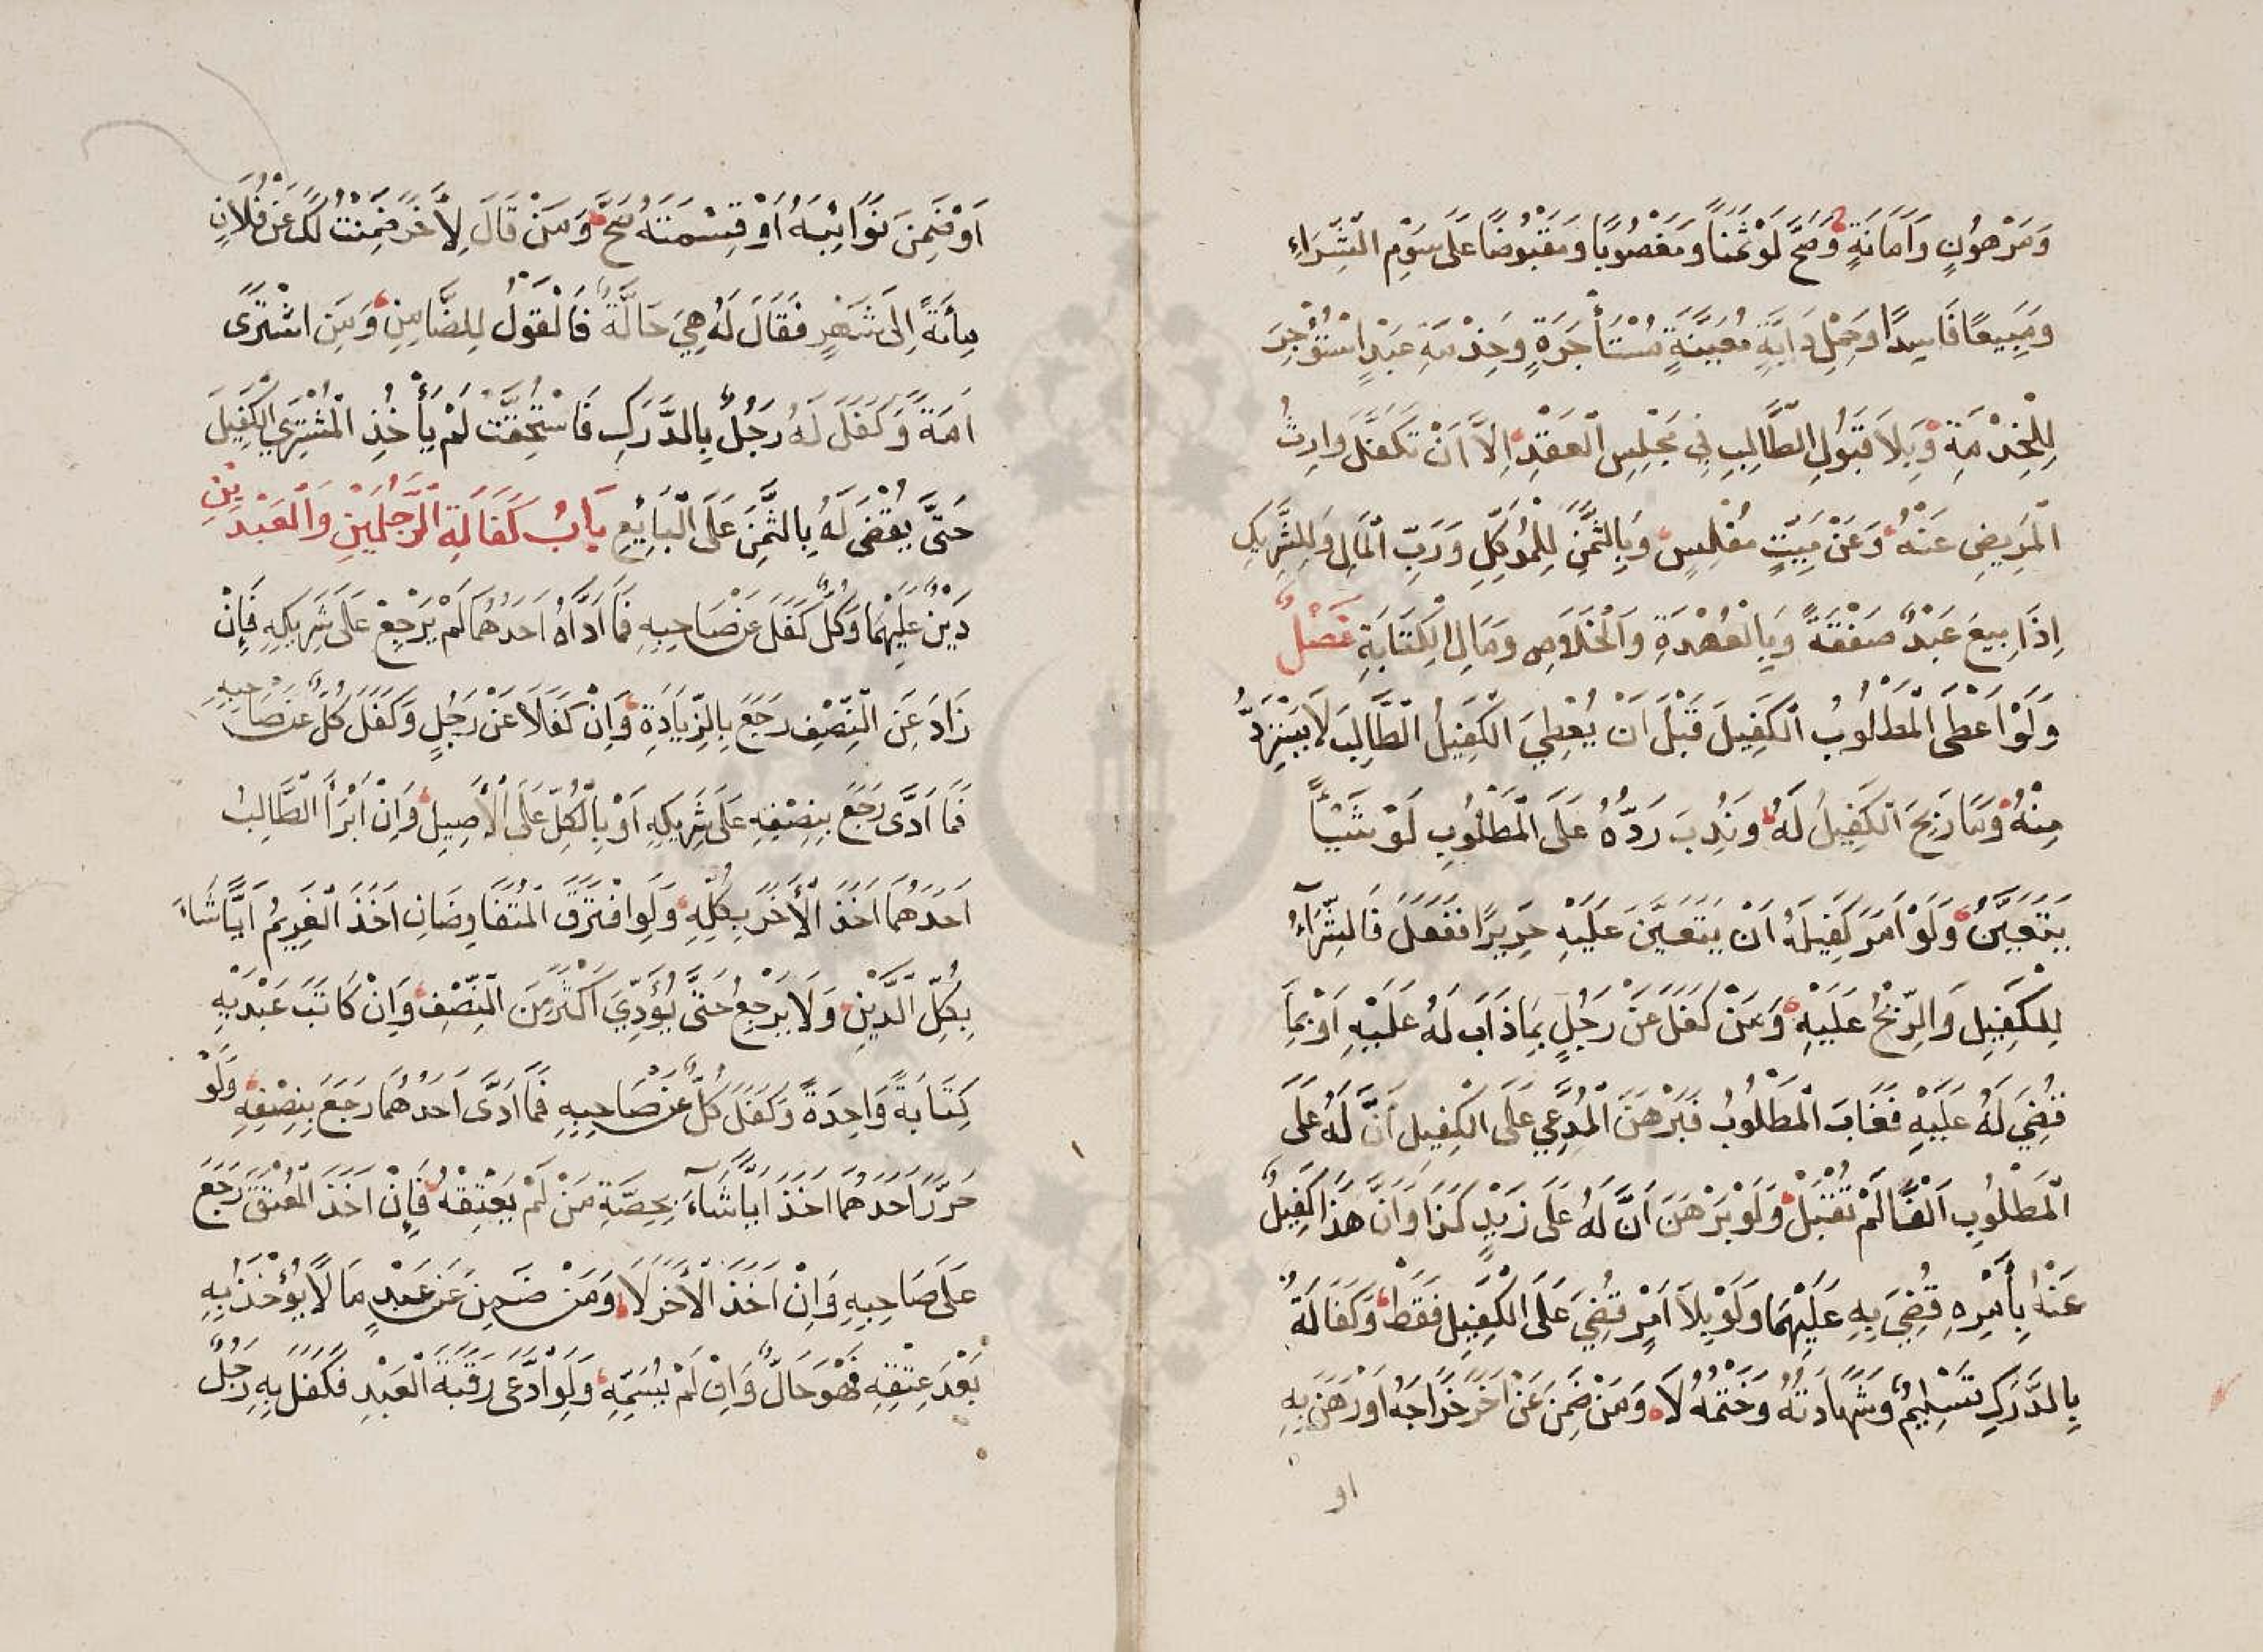 وَمَرْهُونٍ وَاَمَانَةٍ وَصَحَّ لَوْ ثَمَنًا وَمَغْصُوبًا وَمَقْبُوضًا عَلَى سَوْمِ الشِّرَاءِ
وَمَبِيعًا فَاسِدًا وَحَمْلِ دَابَّةٍ مُعَيَّنَةٍ مُسْتَأْجَرَةٍ وَخِدْمَةِ عَبْدٍ اسْتُؤْجِرَ
لِلْخِدْمَةِ وَبِلَا قَبُولِ الطَّالِبِ فِي مَجْلِسِ الْعَقْدِ اِلَّا اَنْ تَكَفَّلَ وَارِثُ
الْمَرِيضِ عَنْهُ وَعَنْ مَيِّتٍ مُفْلِسٍ وَبِالثَّمَنِ لِلْمُوَكِّلِ وَرَبِّ الْمَالِ وَلِلشَّرِيكِ
اِذَا بِيعَ عَبْدٌ صَفْقَةً وَبِالْعُهْدَةِ وَالْخَلَاصِ وَمَالِ الْكِتَابَةِ فَصْلٌ
وَلَوْ اَعْطَى الْمَطْلُوبُ الْكَفِيلَ قَبْلَ اَنْ يُعْطِيَ الْكَفِيلُ الطَّالِبَ لَا يَسْتَرِدُّ
مِنْهُ وَمَا رَبِحَ الْكَفِيلُ لَهُ وَنُدِبَ رَدُّهُ عَلَى الْمَطْلُوبِ لَوْ شَيْئًا
يَتَعَيَّنُ وَلَوْ اَمَرَ كَفِيلَهُ اَنْ يَتَعَيَّنَ عَلَيْهِ حَرِيرًا فَفَعَلَ فَالشِّرَاءُ
لِلْكَفِيلِ وَالرِّبْحُ عَلَيْهِ وَمَنْ كَفَلَ عَنْ رَجُلٍ بِمَا ذَابَ لَهُ عَلَيْهِ اَوْ بِمَا
قُضِيَ لَهُ عَلَيْهِ فَغَابَ الْمَطْلُوبُ فَبَرْهَنَ الْمُدَّعِي عَلَى الْكَفِيلِ اَنَّ لَهُ عَلَى
الْمَطْلُوبِ اَلْفًا لَمْ تُقْبَلْ وَلَوْ بَرْهَنَ اَنَّ لَهُ عَلَى زَيْدٍ كَذَا وَاَنَّ هَذَا كَفِيلٌ
عَنْهُ بِأَمْرِهِ قُضِيَ بِهِ عَلَيْهِمَا وَلَوْ بِلَا اَمْرٍ قُضِيَ عَلَى الْكَفِيلِ فَقَطْ وَكَفَالَةٌ
بِالدَّرَكِ تَسْلِيمٌ وَشَهَادَتُهُ وَخَتْمُهُ لَا وَمَنْ ضَمِنَ عَنْ اَخَرَ خَرَاجَهُ اَوْ رَهَنَ بِهِ
او
اَوْ ضَمِنَ نَوَائِبَهُ اَوْ قِسْمَتَهُ صَحَّ وَمَنْ قَالَ لِأَخَرَ ضَمِنْتُ لَكَ عَنْ فُلَانٍ
مِأَئَةً اِلَى شَهْرٍ فَقَالَ لَهُ هِيَ حَالَّةٌ فَالْقَوْلُ لِلضَّامِنِ وَمَنِ اشْتَرَى
اَمَةً وَكَفَلَ لَهُ رَجُلٌ بِالدَّرَكِ فَاسْتُحِقَّتْ لَمْ يَأْخُذِ الْمُشْتَرِي الْكَفِيلَ
حَتَّى يُقْضَى لَهُ بِالثَّمَنِ عَلَى الْبَائِعِ بَابُ كَفَالَةِ الرَّجُلَيْنِ وَالْعَبْدَيْنِ
دَيْنٌ عَلَيْهِمَا وَكُلٌّ كَفَلَ عَنْ صَاحِبِهِ فَمَا اَدَّاهُ اَحَدُهُمَا لَمْ يَرْجِعْ عَلَى شَرِيكِهِ فَإِنْ
زَادَ عَنِ النِّصْفِ رَجَعَ بِالزِّيَادَةِ وَاِنْ كَفَلَا عَنْ رَجُلٍ وَكَفَلَ كُلٌّ عَنْ صَاحِبِهِ
فَمَا اَدَّى رَجَعَ بِنِصْفِهِ عَلَى شَرِيكِهِ اَوْ بِالْكُلِّ عَلَى الْأَصِيلِ وَاِنْ اَبْرَأَ الطَّالِبُ
اَحَدَهُمَا اَخَذَ الْأَخَرَ بِكُلِّهِ وَلَوِ افْتَرَقَ الْمُتَفَاوِضَانِ اَخَذَ الْغَرِيمُ اَيًّا شَاءَ
بِكُلِّ الدَّيْنِ وَلَا يَرْجِعُ حَتَّى يُؤَدِّيَ اَكْثَرَ مِنَ النِّصْفِ وَاِنْ كَاتَبَ عَبْدَيْهِ
كِتَابَةً وَاحِدَةً وَكَفَلَ كُلٌّ عَنْ صَاحِبِهِ فَمَا اَدَّى اَحَدُهُمَا رَجَعَ بِنِصْفِهِ وَلَوْ
حَرَّرَ اَحَدَهُمَا اَخَذَ اَيًّا شَاءَ بِحِصَّةِ مَنْ لَمْ يُعْتِقْهُ فَإِنْ اَخَذَ الْمُعْتَقَ رَجَعَ
عَلَى صَاحِبِهِ وَاِنْ اَخَذَ الْأَخَرَ لَا وَمَنْ ضَمِنَ عَنْ عَبْدٍ مَالًا يُؤْخَذُ بِهِ
بَعْدَ عِتْقِهِ فَهُوَ حَالٌّ وَاِنْ لَمْ يُسَمِّهِ وَلَوِ ادَّعَى رَقَبَةَ الْعَبْدِ فَكَفَلَ بِهِ رَجُلٌ